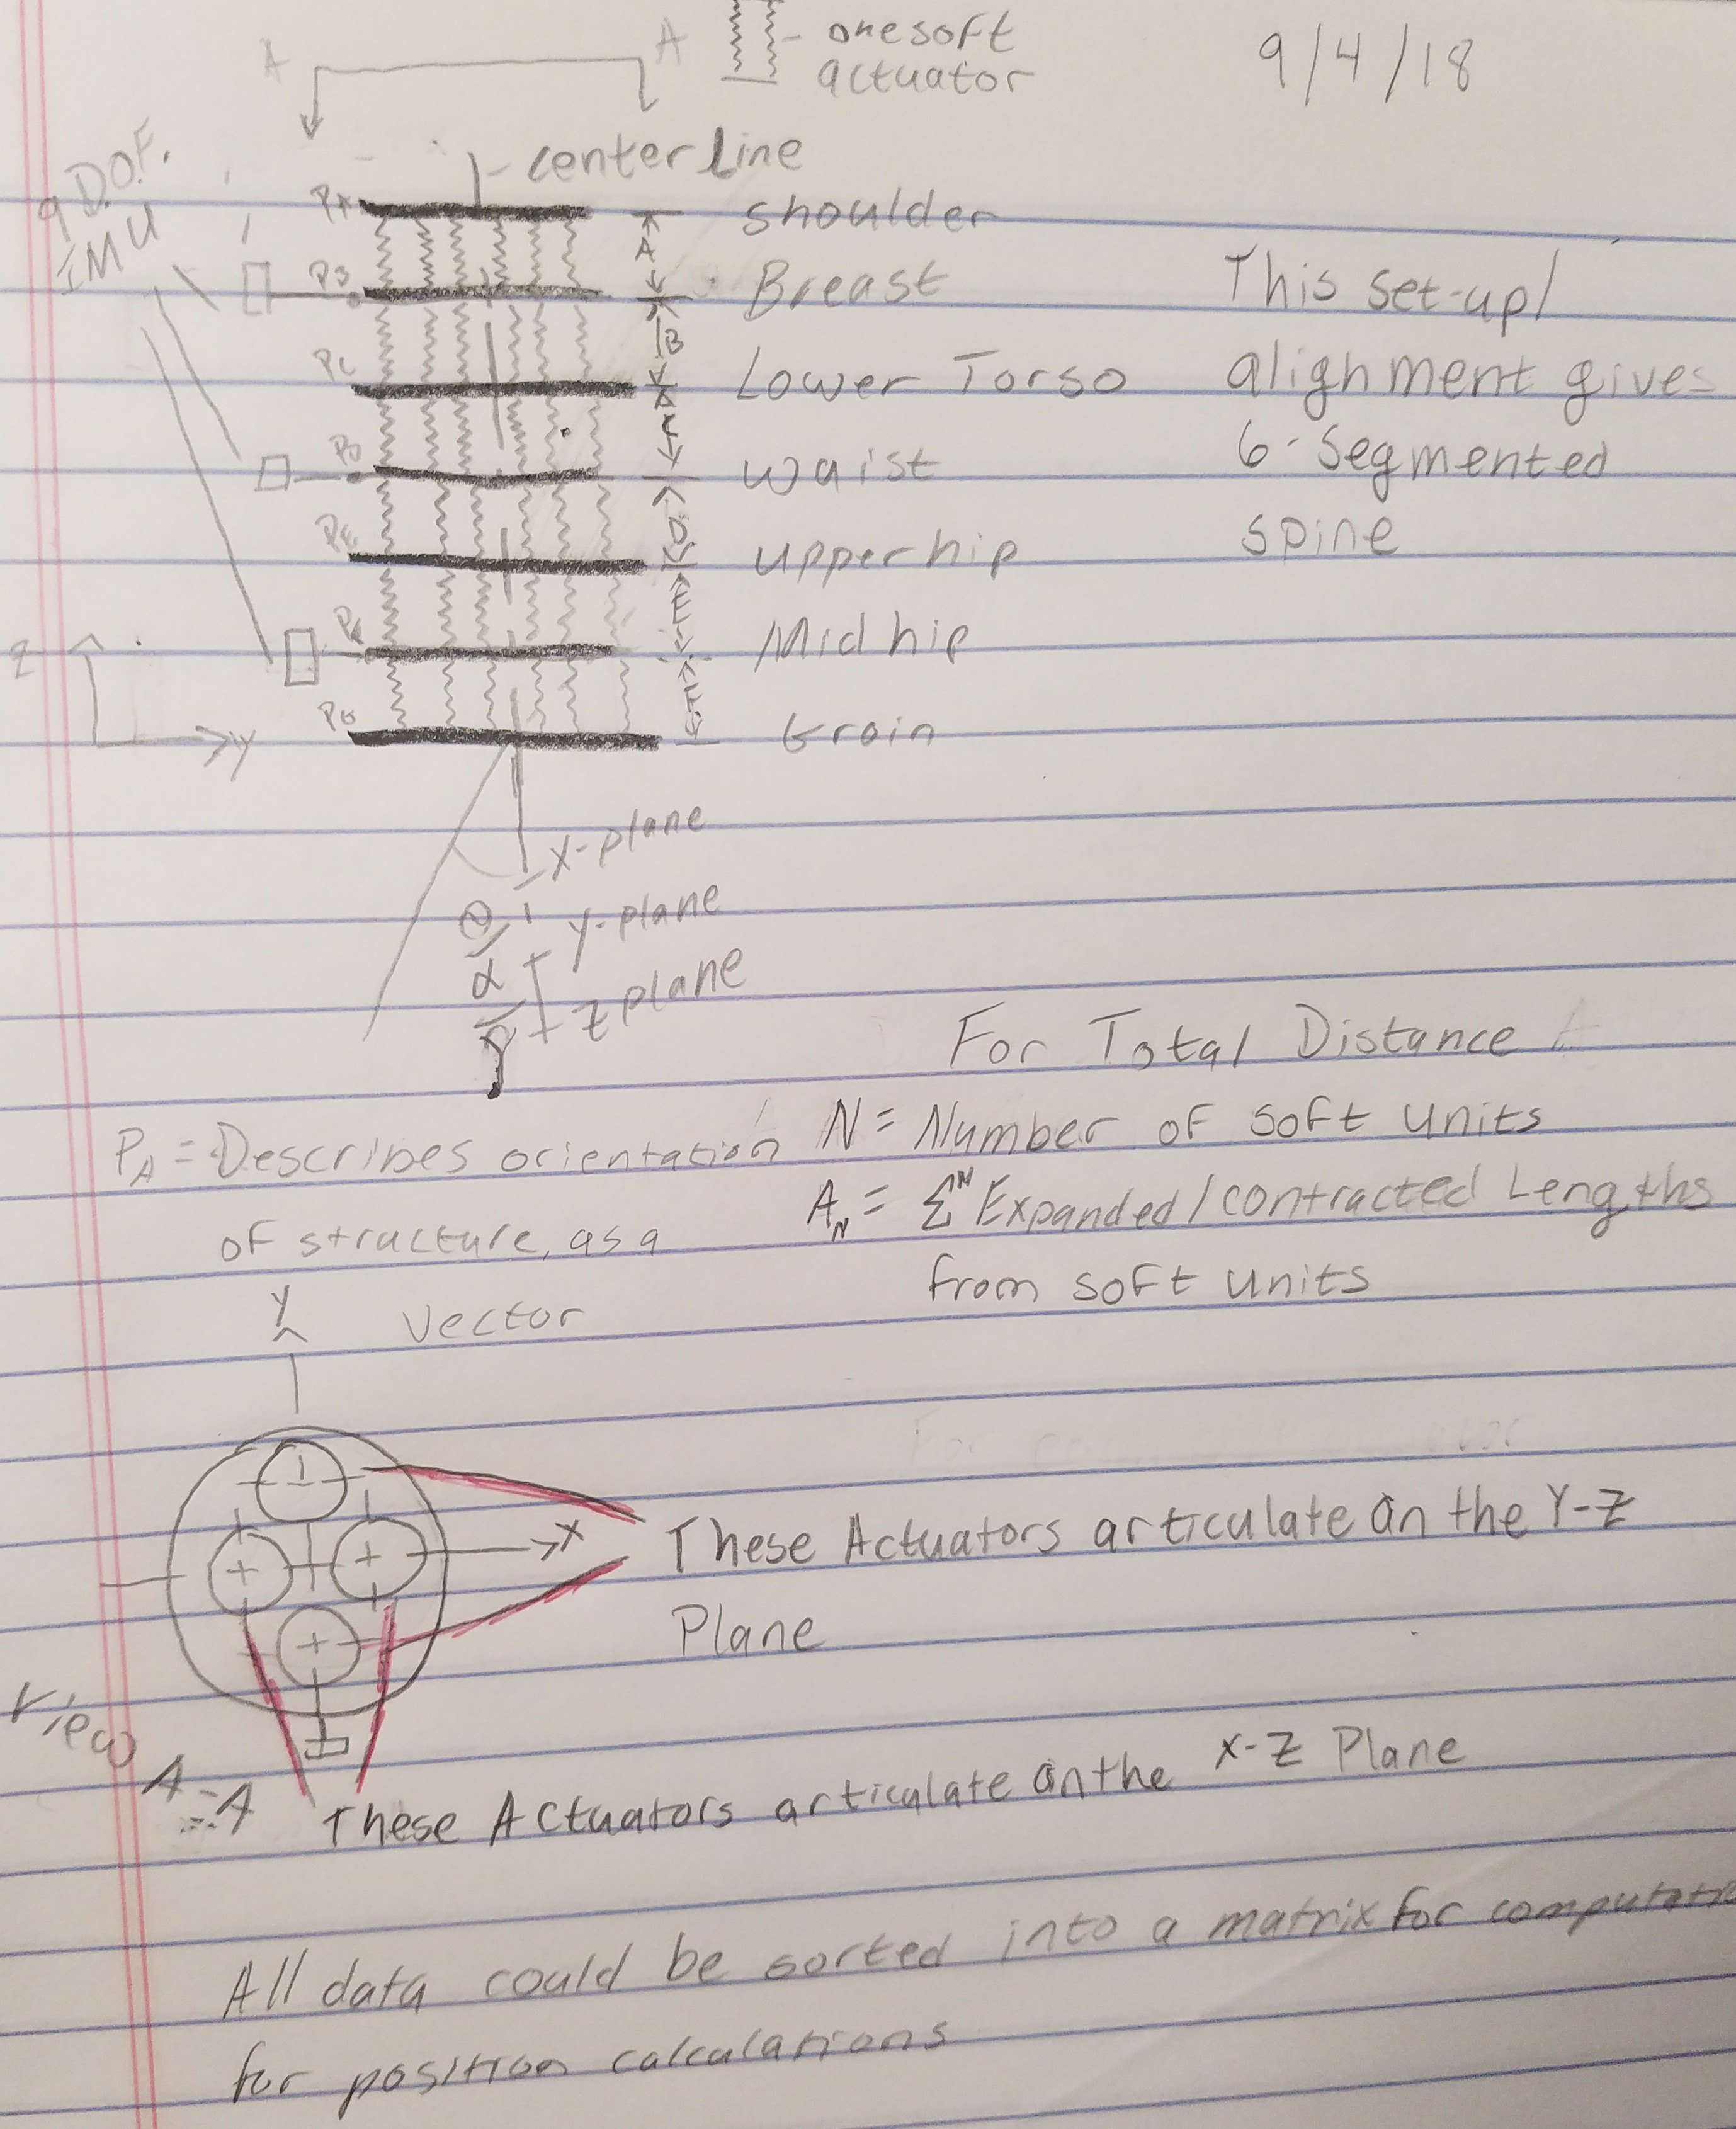 A
A
one soft
actuator
9/4/18
9 D.O.F.
IMU
center line
PA
A
shoulder
PB
Breast
This set-up/
B
PC
Lower Torso
alighment gives
C
PD
waist
6-Segmented
D
PE
upper hip
spine
E
Mid hip
Z
F
PG
Groin
Y
X-plane
Θ
Y-plane
α
Z plane
For Total Distance
PA = Describes orientation
N = Number of soft units
AN = ΣN Expanded/contracted Lengths
of structure, as a
from soft units
Y
Vector
X
These Actuators articulate on the Y-Z
Plane
View
A-A
These Actuators articulate on the X-Z Plane
All data could be sorted into a matrix for computatio
for position calculations